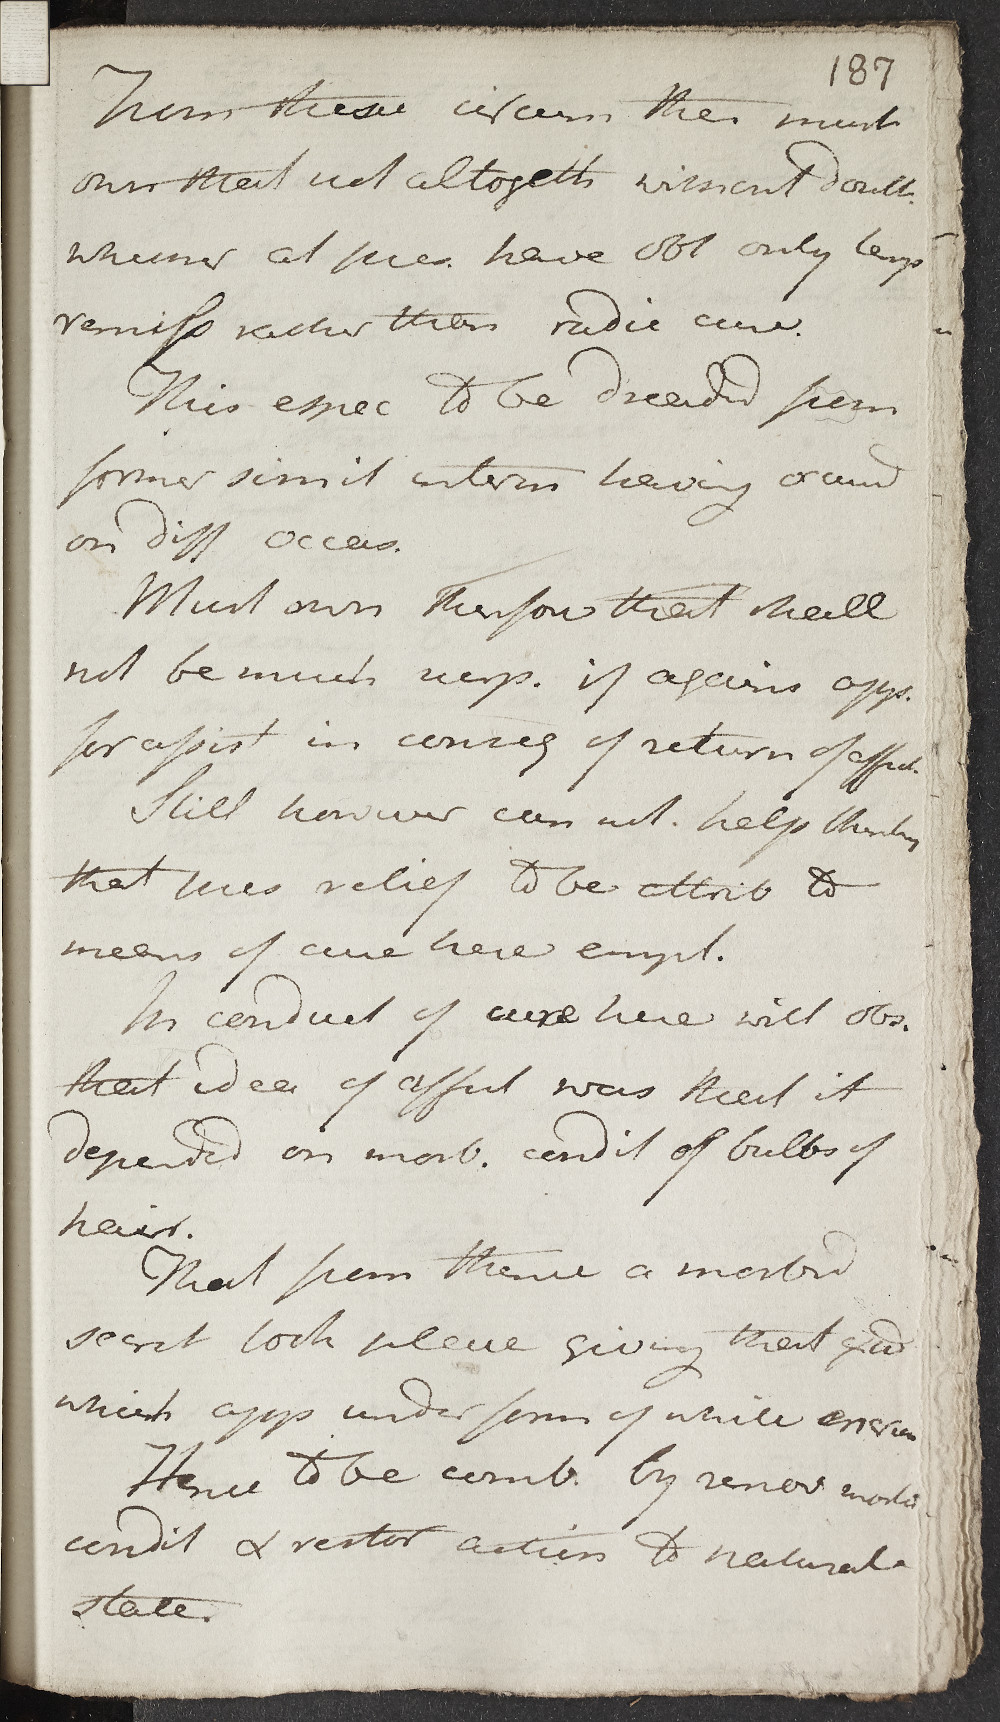 187
From these circum then must
own that not altogeth without doubt
whether at pres. have obt only temp
remiss rather than radic cure.
This espec to be dreaded from
former simil interm having occurd
on diff occas.
Must own therfore that shall
not be much surp. if again app.
for assist in conseq of return of affect.
Still however can not. help thinking
that pres relief to be attrib to
means of cure here empl.
In conduct of cure here will obs.
that idea of affect was that it
depended on morb. condit of bulbs of
hair.
That from thence a morbid
secret took place giving that
which app under form of white
Hence to be comb. by remov morbid
condit & restor action to natural
state.